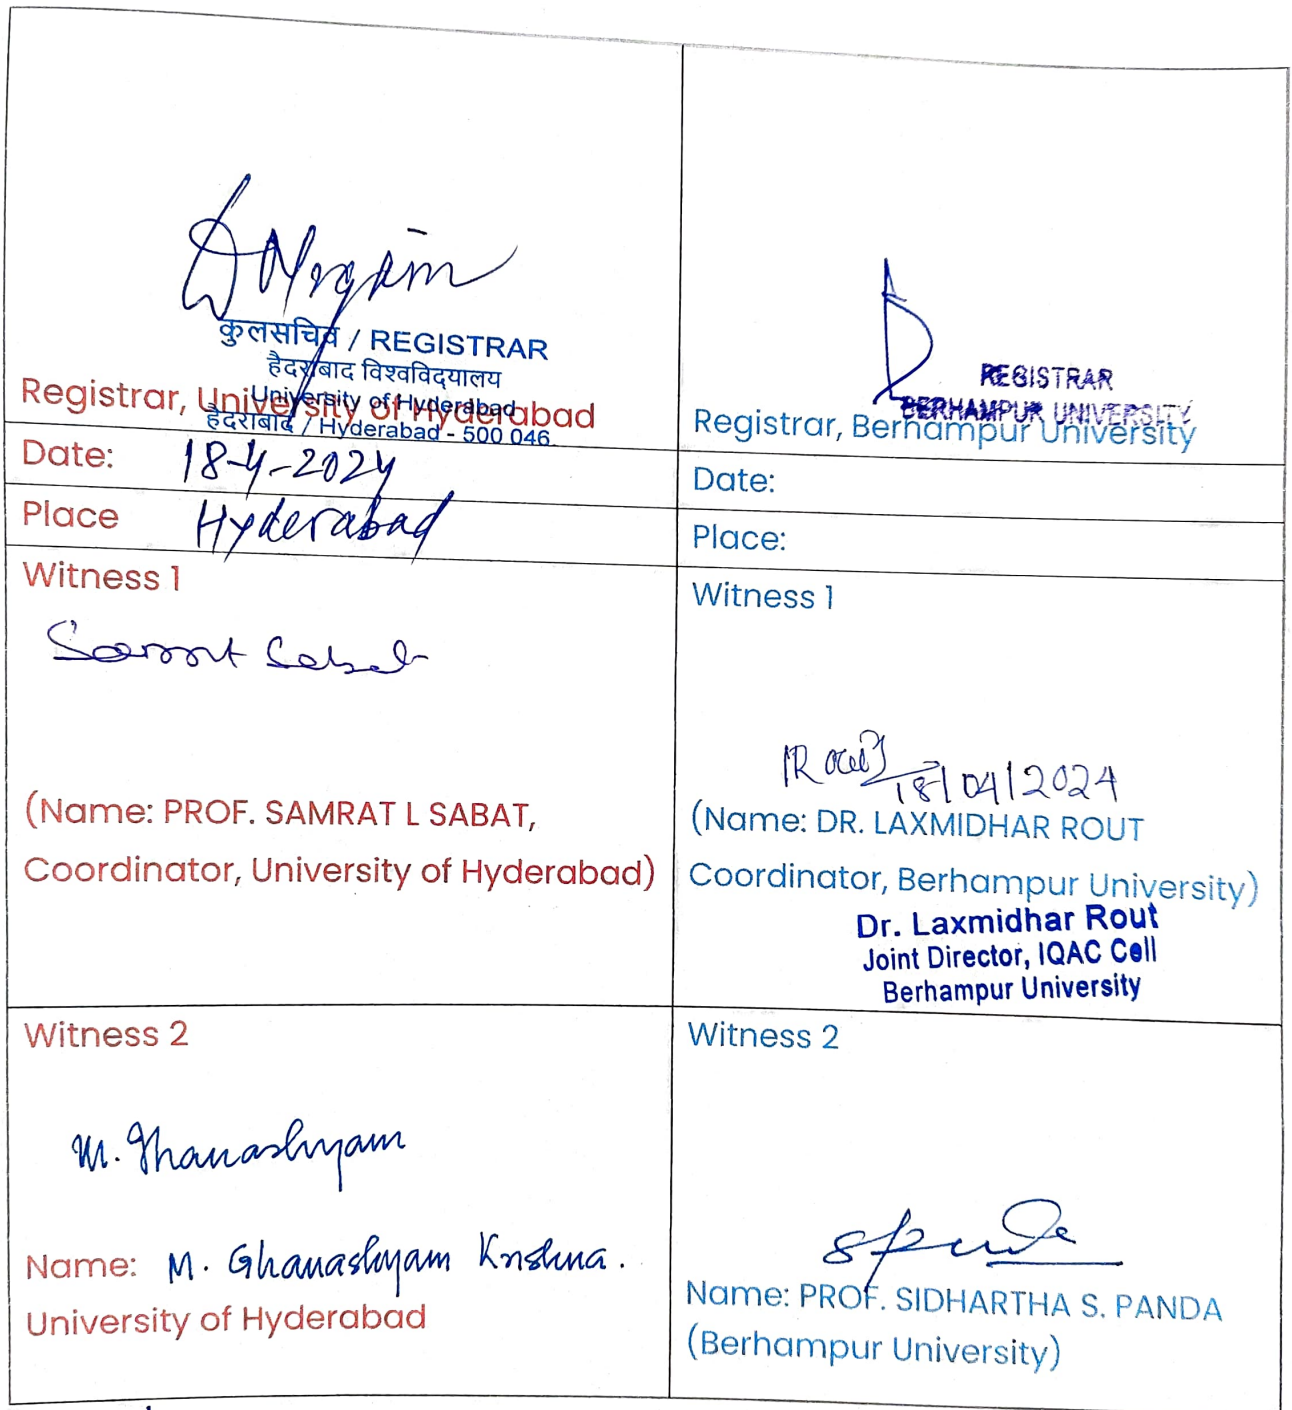 कुलसचिव / REGISTRAR
हैदराबाद विश्वविद्यालय
University of Hyderabad
हैदराबाद / Hyderabad - 500 046
Registrar, University of Hyderabad
Date: 18-4-2024
Place Hyderabad
Witness 1
Samrat Sabat
(Name: PROF. SAMRAT L SABAT,
Coordinator, University of Hyderabad)
Witness 2
M. Ghanashyam
Name: M. Ghanashyam Krishna.
University of Hyderabad
REGISTRAR
BERHAMPUR UNIVERSITY
Registrar, Berhampur University
Date:
Place:
Witness 1
Rout
18/04/2024
(Name: DR. LAXMIDHAR ROUT
Coordinator, Berhampur University)
Dr. Laxmidhar Rout
Joint Director, IQAC Cell
Berhampur University
Witness 2
Name: PROF. SIDHARTHA S. PANDA
(Berhampur University)